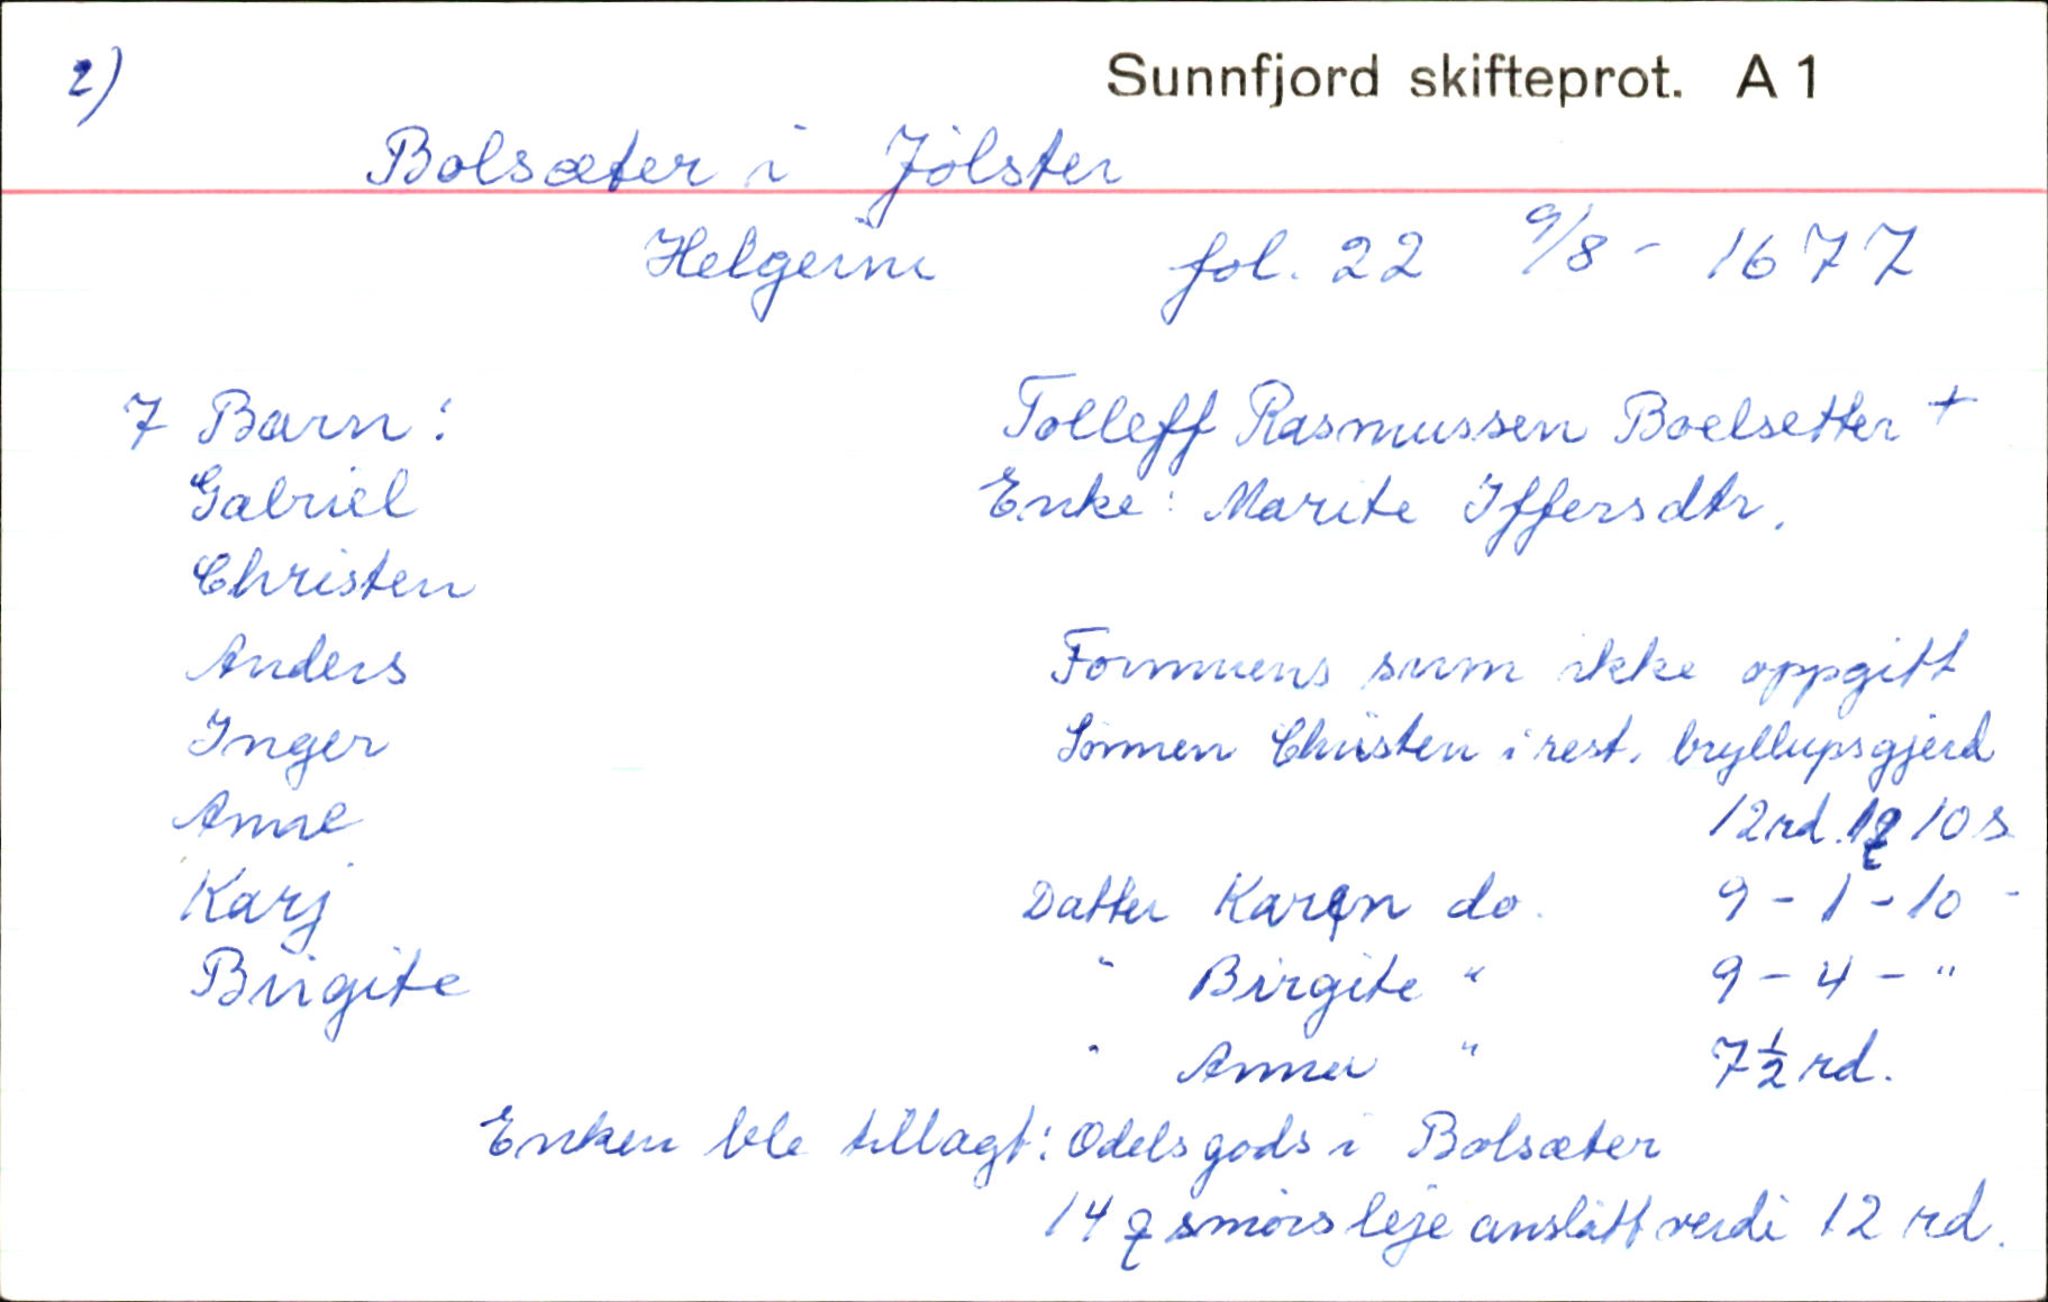 2)
Sunnfjord skifteprot. A 1
Bolsæter i Jölster
Helgeim fol. 22 9/8 - 1677
7 Barn: Tolleff Rasmussen Boelsetter +
Gabriel Enke: Marite Iffersdtr.
Christen
Anders Formuens sum ikke oppgitt
Inger Sönnen Christen i rest. bryllupsgjerd
Anne 12 rd. 1 10 s
Karj Datter Karen do. 9 - 1 - 10 -
Birgite " Birgite " 9 - 4 - "
" Anna " 7 1/2 rd.
Enken ble tillagt: Odelsgods i Bolsæter
14 smörs leje anslått verdi 12 rd.